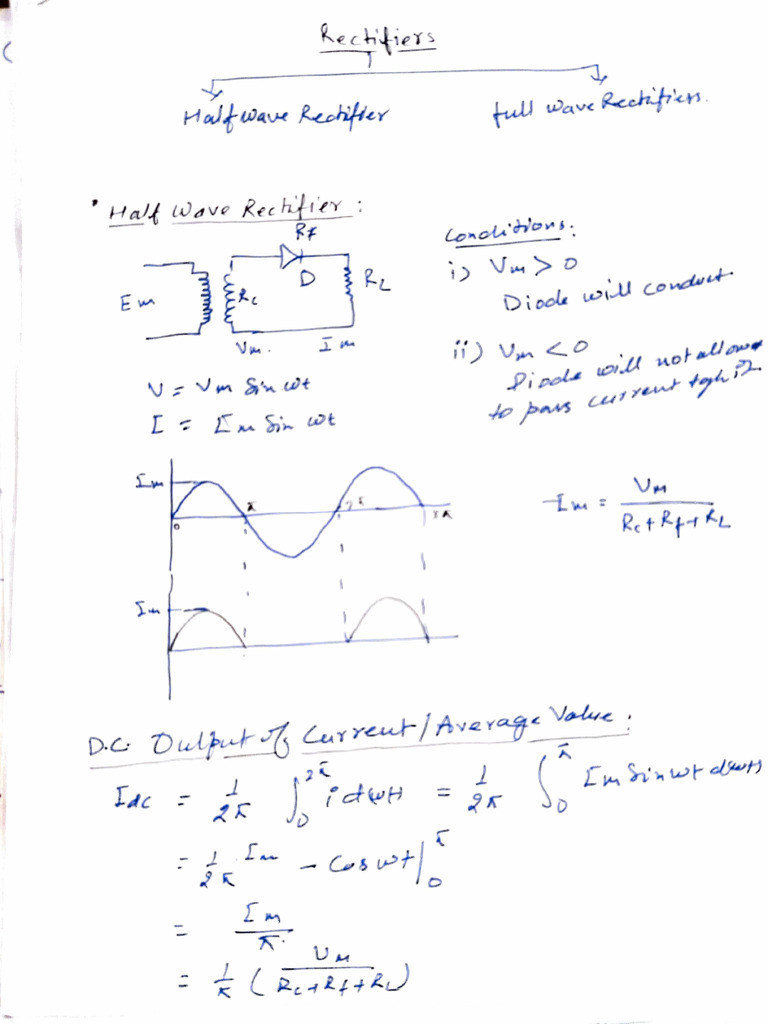 Rectifiers
Half wave Rectifier
full wave Rectifiers.
• Half Wave Rectifier :
Rf
D
Em
Rc
RL
Vm.
Im
V = Vm Sin ωt
I = Im Sin ωt
Conditions:
i) Vm > 0
Diode will conduct
ii) Vm < 0
Diode will not allow
to pass current
Im
0
π
2π
3π
Im = Vm / Rc + Rf + RL
Im
D.C. Output of Current / Average Value :
Idc = 1/2π ∫₀^2π i dωt = 1/2π ∫₀^π Im Sin ωt dωt
= 1/2π Im - Cos ωt |₀^π
= Im / π.
= 1/π ( Vm / Rc + Rf + RL )